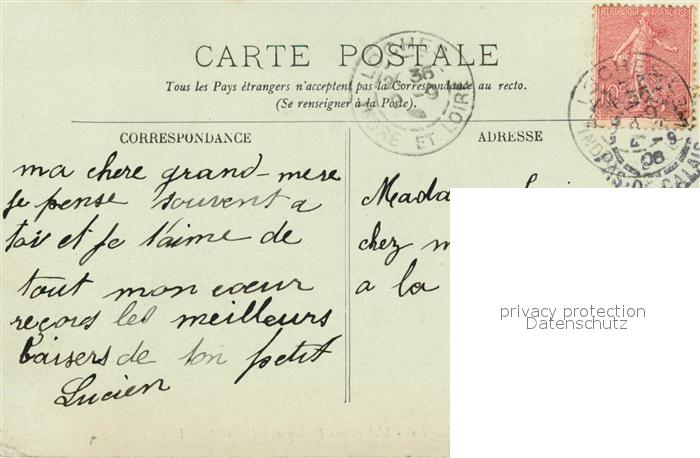 CARTE POSTALE
Tous les Pays étrangers n'acceptent pas la Correspondance au recto.
(Se renseigner à la Poste).
CORRESPONDANCE
ma chere grand-mere
je pense souvent a
toi et je t'aime de
tout mon coeur
reçois les meilleurs
baisers de ton petit
Lucien
ADRESSE
Mada
chez m
a la
REPUBLIQUE FRANÇAISE
LOCHES
INDRE ET LOIRE
privacy protection
Datenschutz